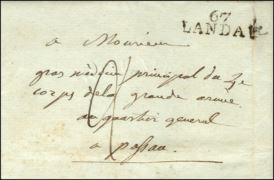 67
LANDAU
a Monsieur
gros médecin principal du 3e
corps de la grande armée
au quartier general
a passau.